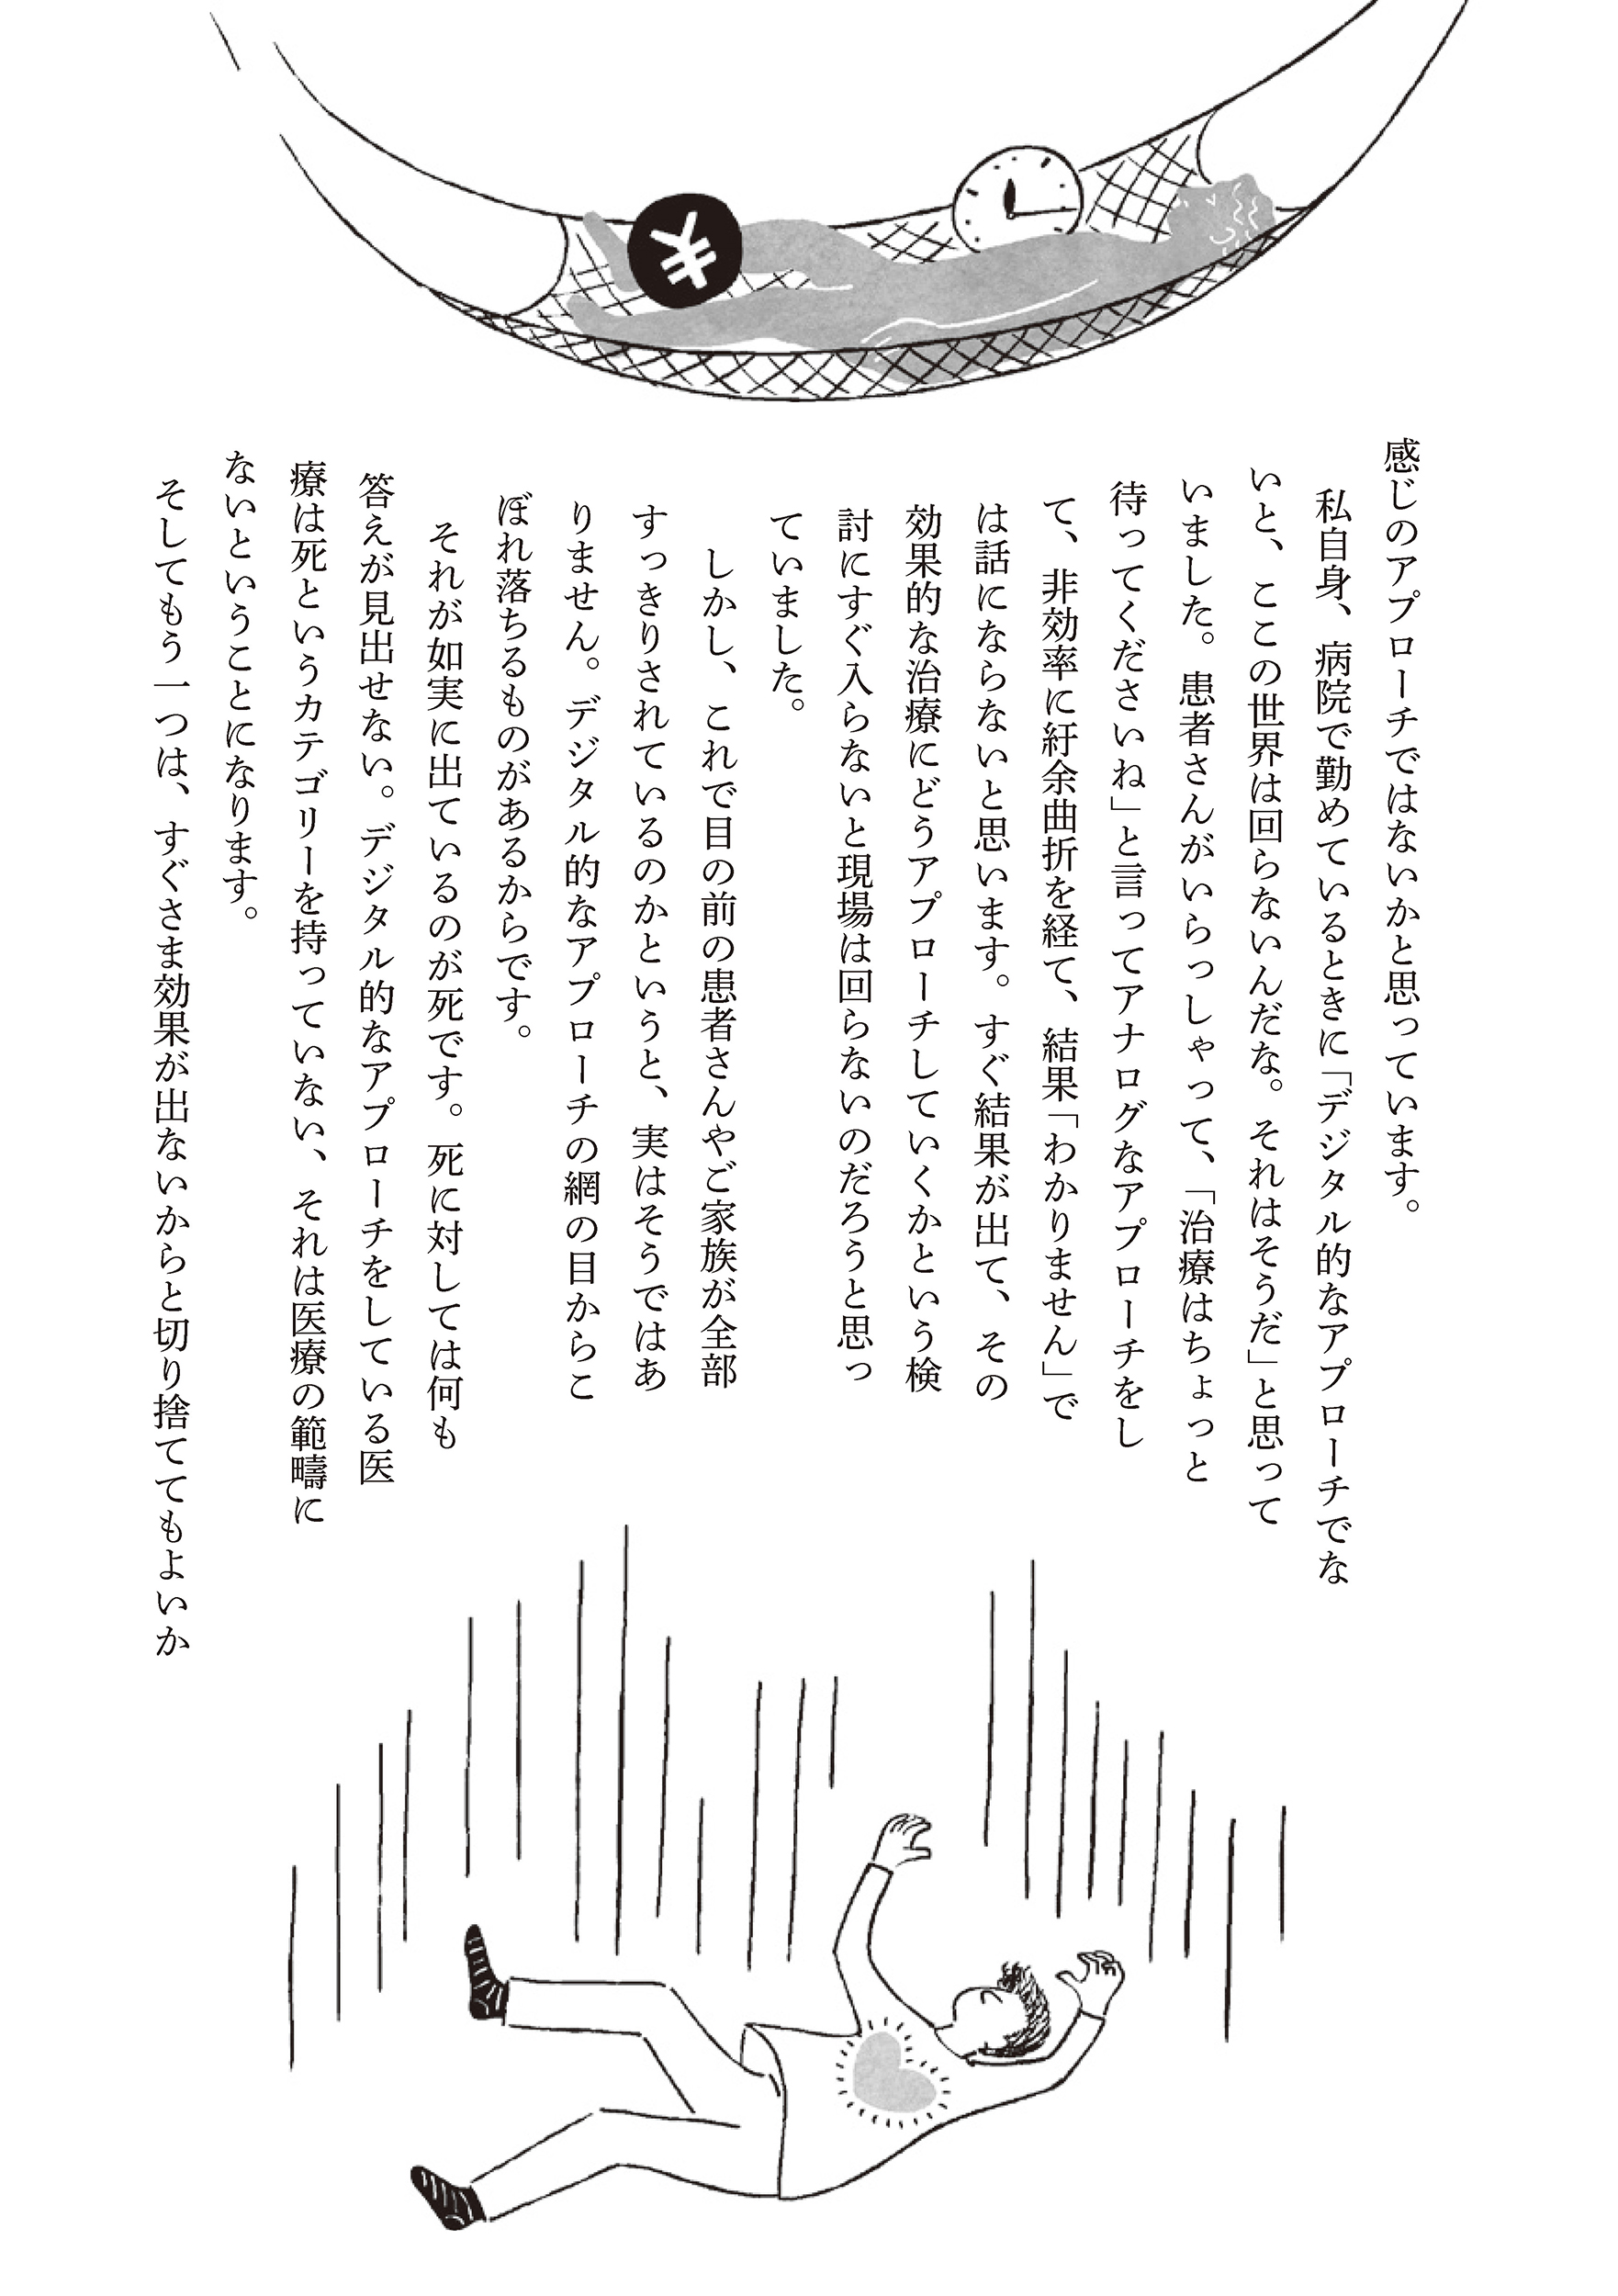 ¥
感じのアプローチではないかと思っています。
私自身、病院で勤めているときに「デジタル的なアプローチでな
いと、ここの世界は回らないんだな。それはそうだ」と思って
いました。患者さんがいらっしゃって、「治療はちょっと
待ってくださいね」と言ってアナログなアプローチをし
て、非効率に紆余曲折を経て、結果「わかりません」で
は話にならないと思います。すぐ結果が出て、その
効果的な治療にどうアプローチしていくかという検
討にすぐ入らないと現場は回らないのだろうと思っ
ていました。
しかし、これで目の前の患者さんやご家族が全部
すっきりされているのかというと、実はそうではあ
りません。デジタル的なアプローチの網の目からこ
ぼれ落ちるものがあるからです。
それが如実に出ているのが死です。死に対しては何も
答えが見出せない。デジタル的なアプローチをしている医
療は死というカテゴリーを持っていない、それは医療の範疇に
ないということになります。
そしてもう一つは、すぐさま効果が出ないからと切り捨ててもよいか